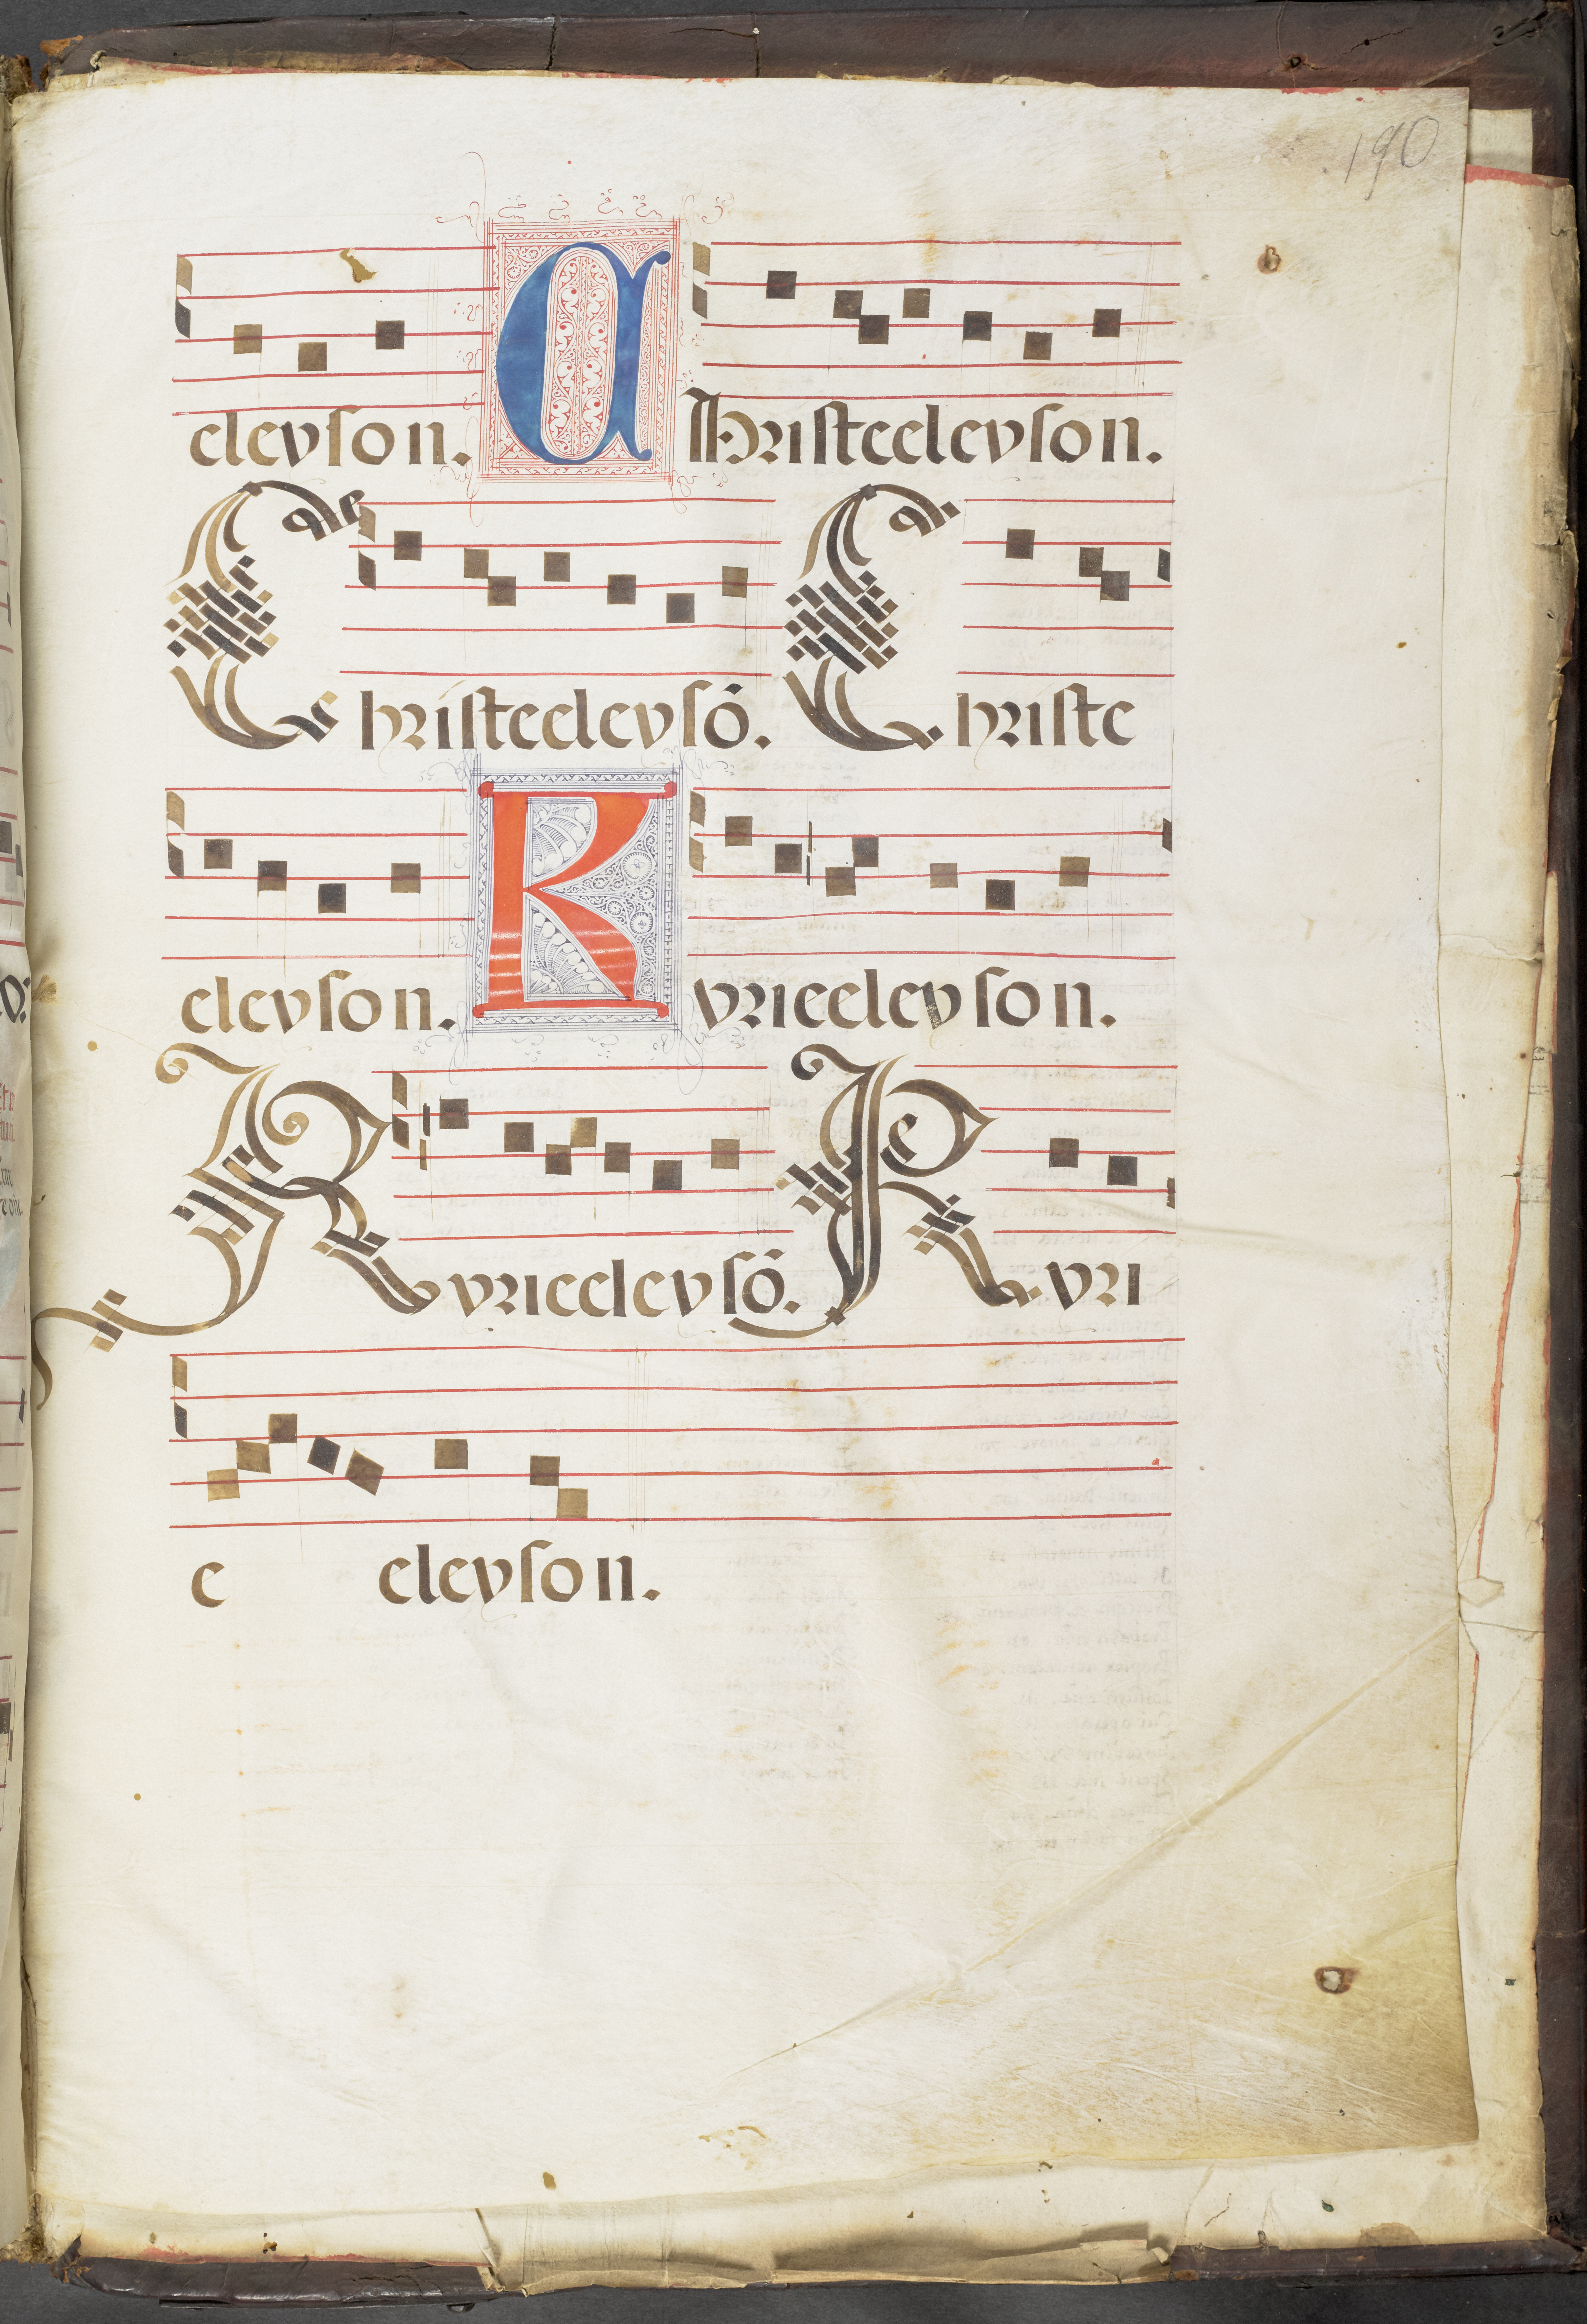 190
eleyson. Christeeleyson.
Christeeleysō. Christe
eleyson. Kyrieeleyson.
Kyrieeleysō. Kyri
e eleyson.